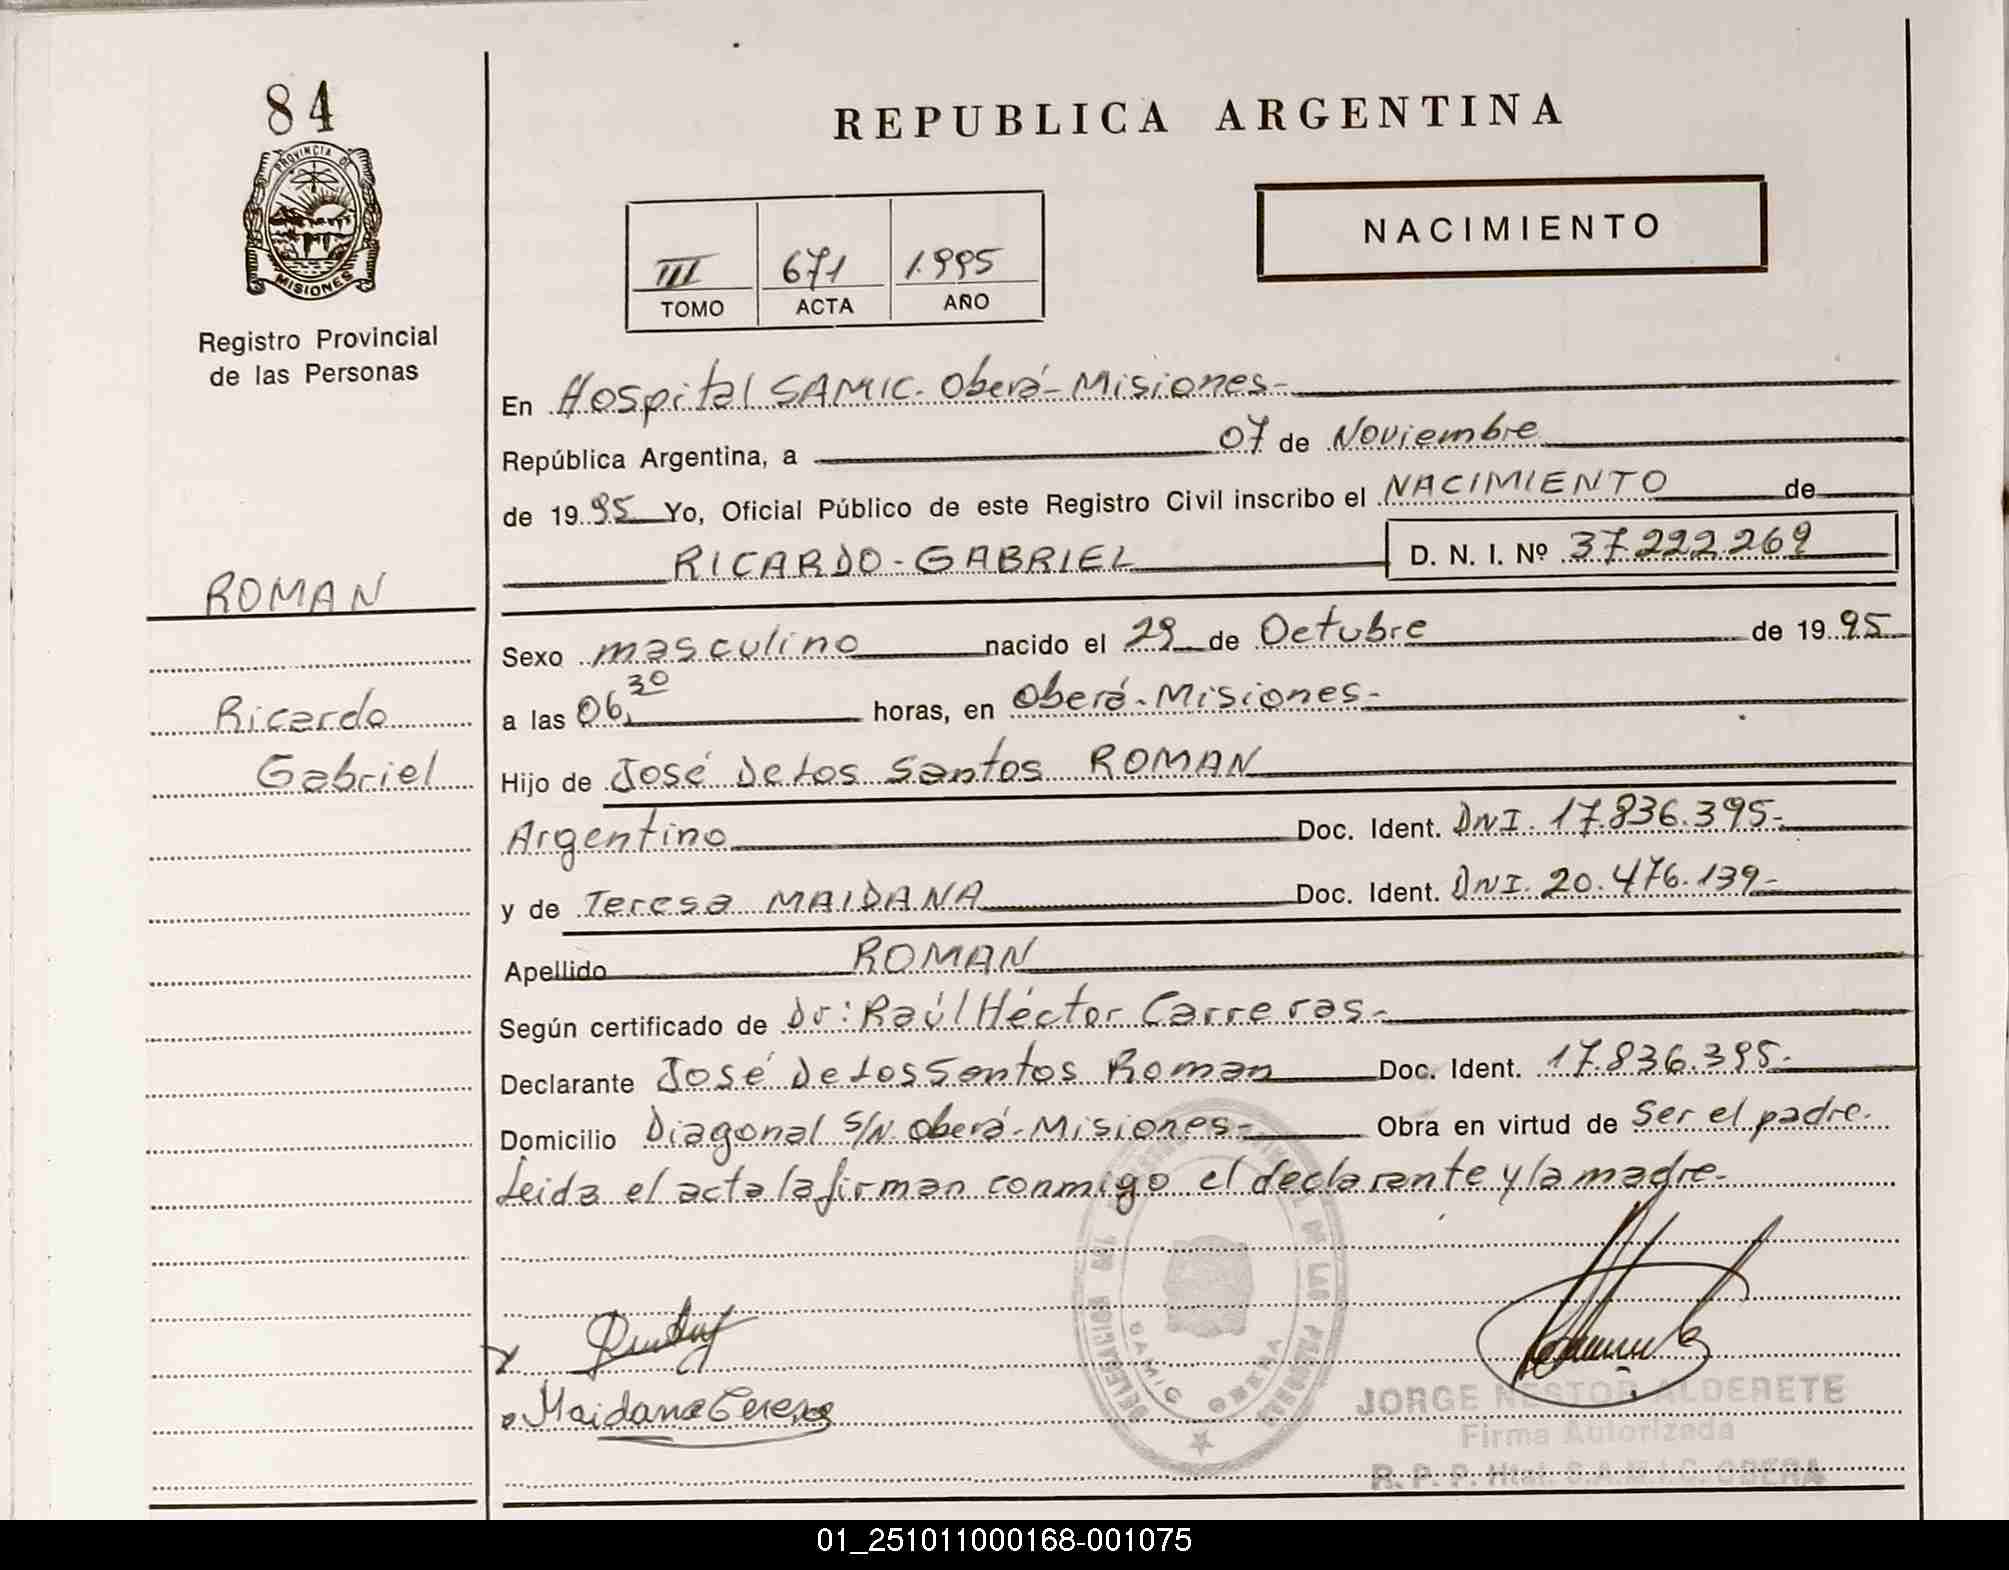 84
PROVINCIA DE
MISIONES
Registro Provincial
de las Personas
REPUBLICA ARGENTINA
NACIMIENTO
III 671 1.995
TOMO ACTA AÑO
En Hospital SAMIC. Oberá-Misiones-
República Argentina, a 07 de Noviembre
de 1995 Yo, Oficial Público de este Registro Civil inscribo el NACIMIENTO de
RICARDO-GABRIEL D. N. I. Nº 37.222.269
ROMAN
Ricardo
Gabriel
Sexo masculino nacido el 29 de Octubre de 1995
a las 06,30 horas, en Oberá-Misiones-
Hijo de José De Los Santos ROMAN
Argentino Doc. Ident. DNI. 17.836.395-
y de Teresa MAIDANA Doc. Ident. DNI. 20.476.139-
Apellido ROMAN
Según certificado de Dr: Raúl Héctor Carreras-
Declarante José De Los Santos Roman Doc. Ident. 17.836.395-
Domicilio Diagonal S/N. Oberá-Misiones- Obra en virtud de Ser el padre.
Leida el acta la firman conmigo el declarante y la madre-
Maidana Teresa
DELEGACION
DE LAS PERSONAS
SAMIC OBERA
JORGE NESTOR ALDERETE
Firma Autorizada
R. P. P. Htal. S.A.M.I.C. OBERA
01_251011000168-001075